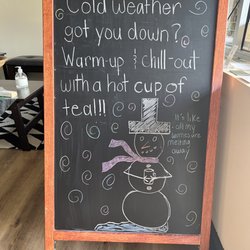 Cold weather
got you down?
Warm-up & chill-out
with a hot cup of
tea!!!
It's like
all my
worries are
melting
away